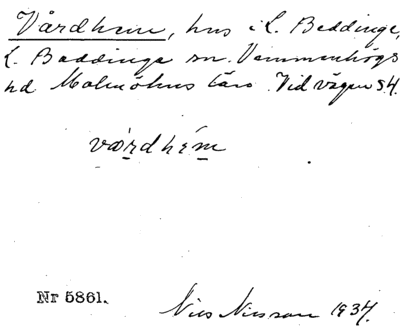 Vårdhem, hus i L. Beddinge,
L. Beddinge sn. Vemmenhögs
hd Malmöhus län. Vid vägen S4.
vǻrdhém
Nr 5861.
Nils Nilsson 1937.